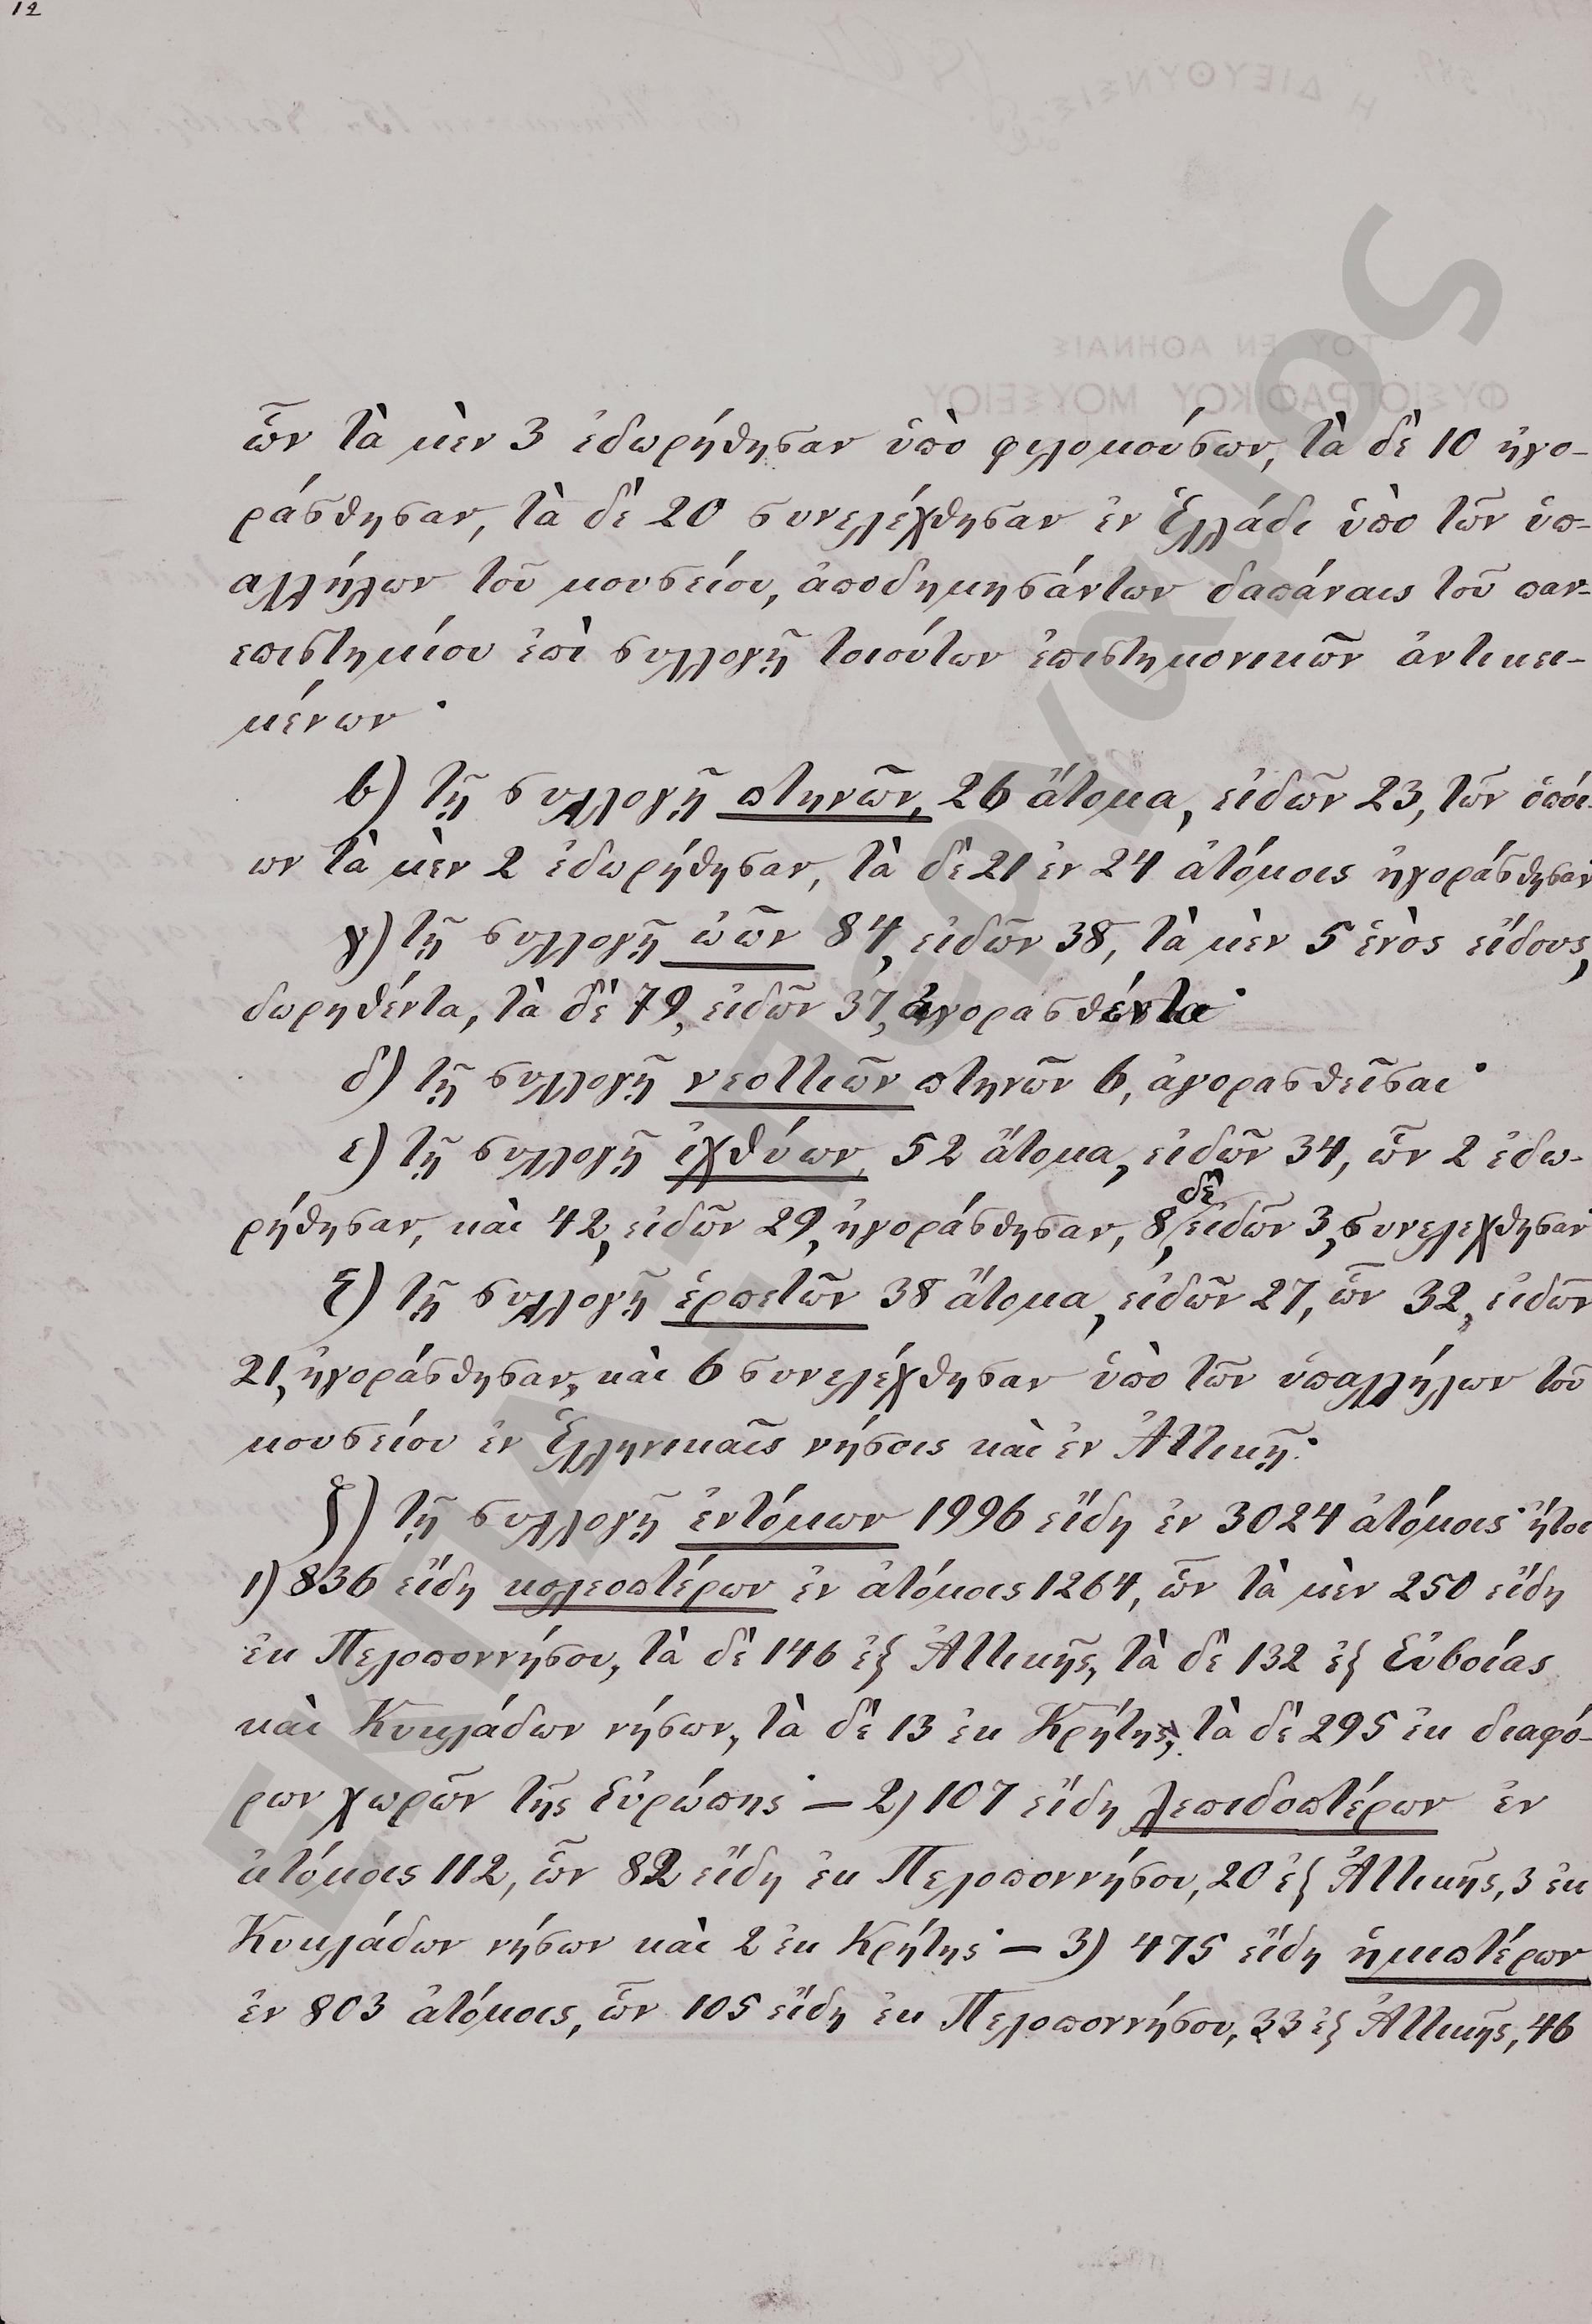 12
ὧν τὰ μὲν 3 ἐδωρήθησαν ὑπὸ φιλομούσων, τὰ δὲ 10 ἠγο-
ράσθησαν, τὰ δὲ 20 συνελέχθησαν ἐν Ἑλλάδι ὑπὸ τῶν ὑπ-
αλλήλων τοῦ μουσείου, ἀποδημησάντων δαπάναις τοῦ παν-
επιστημίου ἐπὶ συλλογῇ τοιούτων ἐπιστημονικῶν ἀντικει-
μένων·
β) τῇ συλλογῇ πτηνῶν, 26 ἄτομα, εἰδῶν 23, τῶν ὁποί-
ων τὰ μὲν 2 ἐδωρήθησαν, τὰ δὲ 21 ἐν 24 ἀτόμοις ἠγοράσθησαν
γ) τῇ συλλογῇ ὠῶν 84, εἰδῶν 38, τὰ μὲν 5 ἑνὸς εἴδους,
δωρηθέντα, τὰ δὲ 79, εἰδῶν 37, ἀγορασθέντα·
δ) τῇ συλλογῇ νεοττιῶν πτηνῶν 6, ἀγορασθεῖσαι·
ε) τῇ συλλογῇ ἰχθύων, 52 ἄτομα, εἰδῶν 34, ὧν 2 ἐδω-
ρήθησαν, καὶ 42, εἰδῶν 29, ἠγοράσθησαν, 8, δὲ εἰδῶν 3, συνελεχθησαν
ς) τῇ συλλογῇ ἑρπετῶν 38 ἄτομα, εἰδῶν 27, ὧν 32, εἰδῶν
21, ἠγοράσθησαν, καὶ 6 συνελέχθησαν ὑπὸ τῶν ὑπαλλήλων τοῦ
μουσείου ἐν Ἑλληνικαῖς νήσοις καὶ ἐν Ἀττικῇ·
ζ) τῇ συλλογῇ ἐντόμων 1996 εἴδη ἐν 3024 ἀτόμοις· ἤτοι
1) 836 εἴδη κολεοπτέρων ἐν ἀτόμοις 1264, ὧν τὰ μὲν 250 εἴδη
ἐκ Πελοποννήσου, τὰ δὲ 146 ἐξ Ἀττικῆς, τὰ δὲ 132 ἐξ Εὐβοίας
καὶ Κυκλάδων νήσων, τὰ δὲ 13 ἐκ Κρήτης, τὰ δὲ 295 ἐκ διαφό-
ρων χωρῶν τῆς Εὐρώπης· — 2) 107 εἴδη λεπιδοπτέρων ἐν
ἀτόμοις 112, ὧν 82 εἴδη ἐκ Πελοποννήσου, 20 ἐξ Ἀττικῆς, 3 ἐκ
Κυκλάδων νήσων καὶ 2 ἐκ Κρήτης· — 3) 475 εἴδη ἡμιπτέρων
ἐν 803 ἀτόμοις, ὧν 105 εἴδη ἐκ Πελοποννήσου, 33 ἐξ Ἀττικῆς, 46